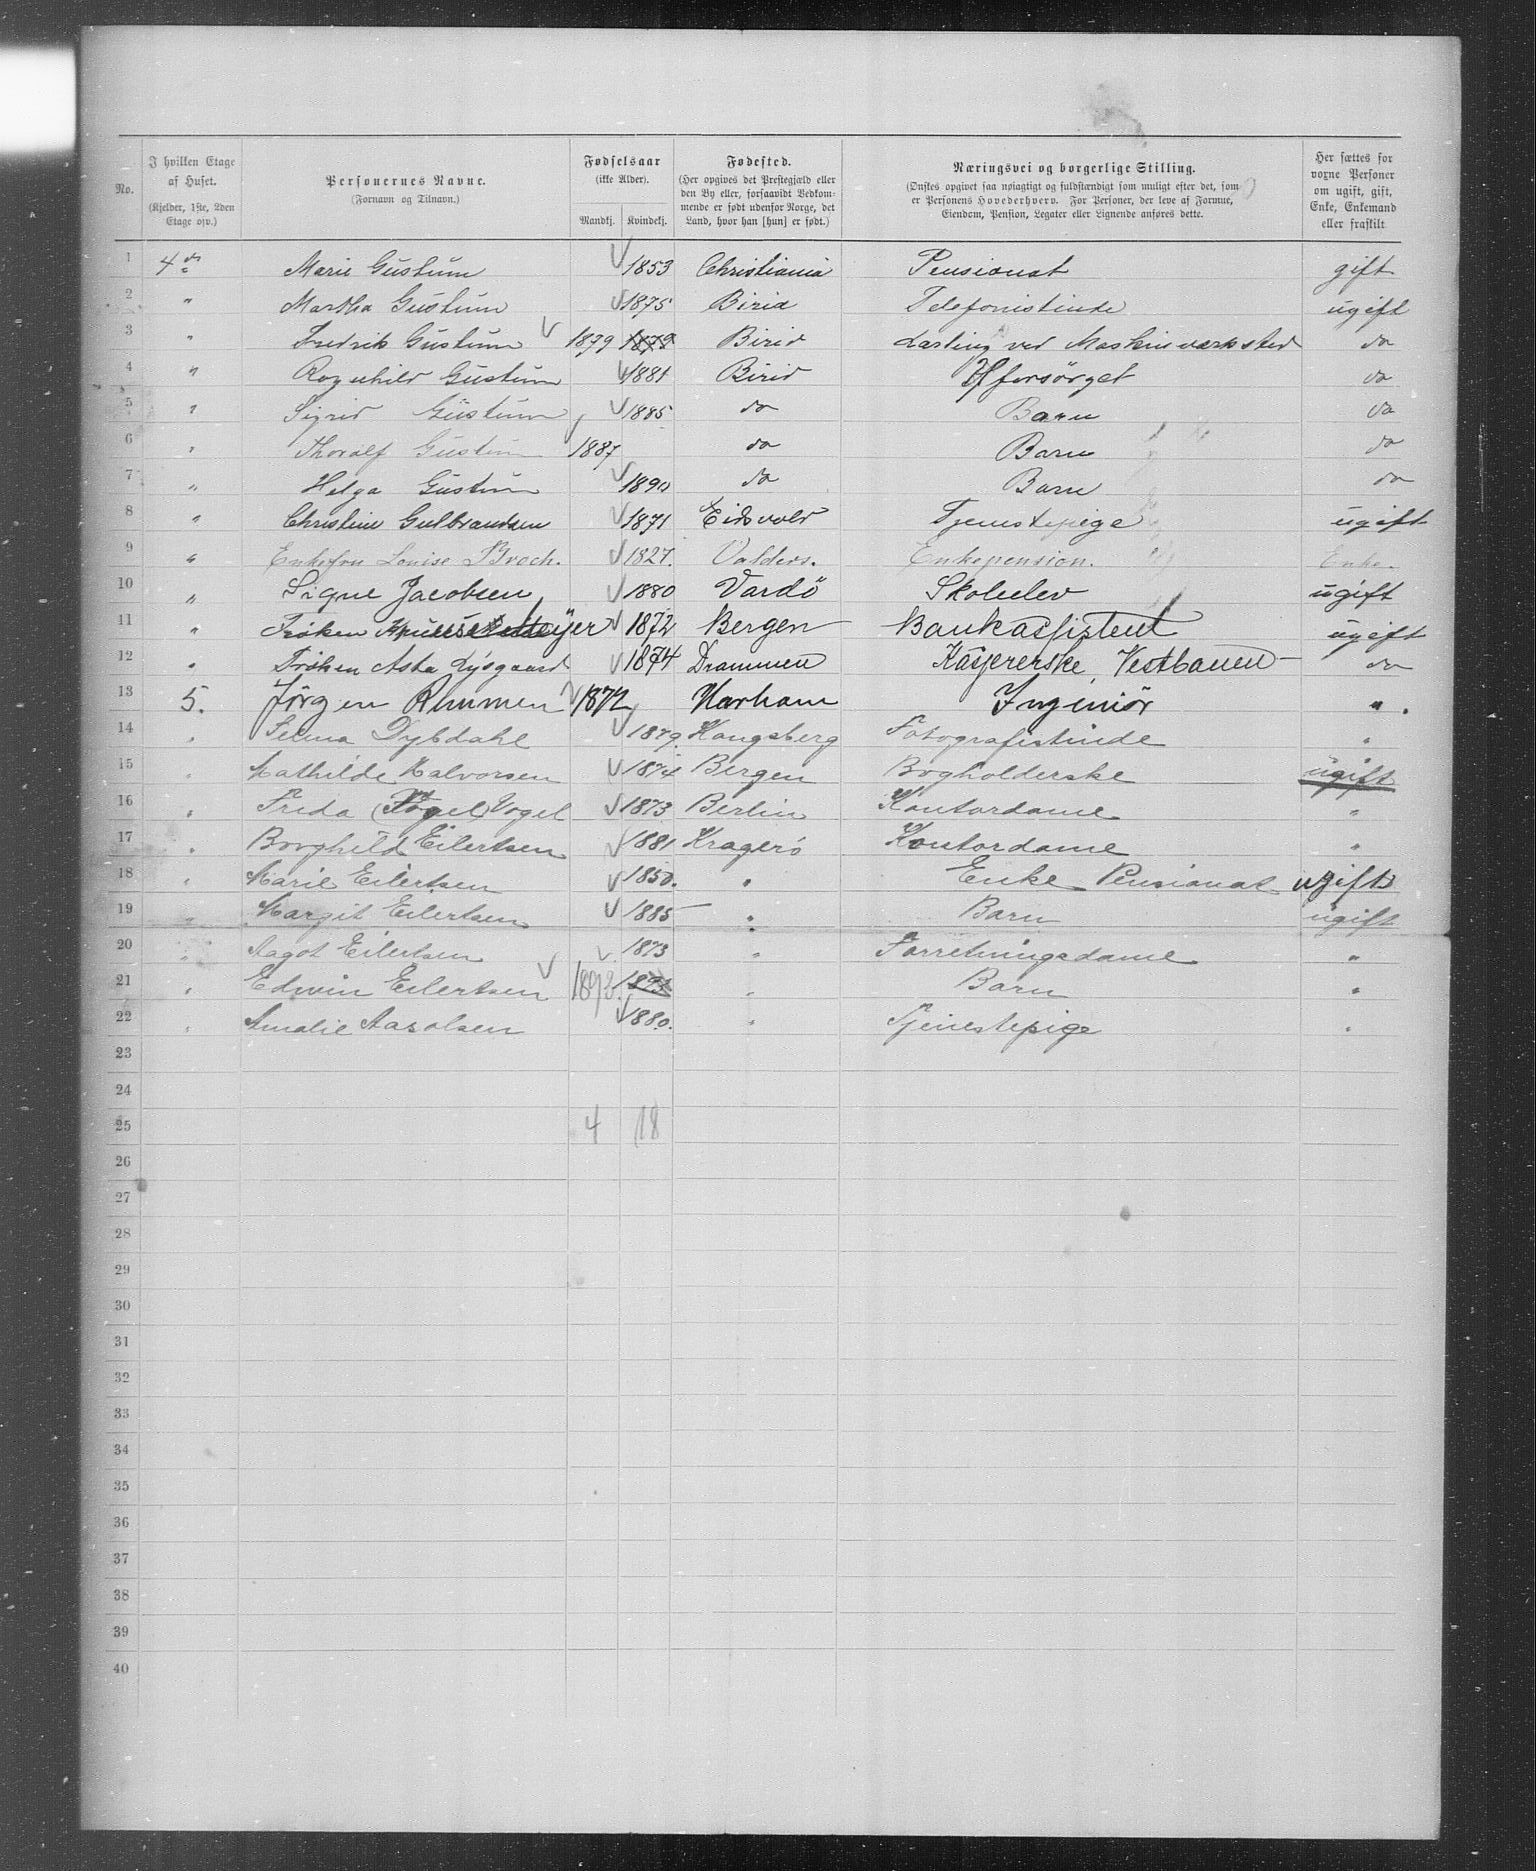 No.
I hvilken Etage af Huset.
(Kjelder, 1ste, 2den Etage osv.)
Personernes Navne.
(Fornavn og Tilnavn.)
Fødselsaar
(ikke Alder).
Mandkj. Kvindekj.
Fødested.
(Her opgives det Prestegjæld eller
den By eller, forsaavidt Vedkom-
mende er født udenfor Norge, det
Land, hvor han [hun] er født.)
Næringsvei og borgerlige Stilling.
(Ønskes opgivet saa nøiagtigt og fuldstændigt som muligt efter det, som
er Personens Hovederhverv. For Personer, der leve af Formue,
Eiendom, Pension, Legater eller Lignende anføres dette.
Her sættes for
voxne Personer
om ugift, gift,
Enke, Enkemand
eller fraskilt
1 4de Marie Gustum 1853 Christiania Pensionat gift
2 " Martha Gustum 1875 Birid Telefonistinde ugift
3 " Fredrik Gustum 1879 1879 Birid Lærling ved Maskinværksted do
4 " Ragnhild Gustum 1881 Birid forsørget do
5 " Sigrid Gustum 1885 do Barn do
6 " Thoralf Gustum 1887 do Barn do
7 " Helga Gustum 1890 do Barn do
8 " Christine Gulbrandsen 1871 Eidsvold Tjenstepige ugift
9 " Enkefru Louise Broch. 1827. Valders. Enkepension. Enke.
10 " Signe Jacobsen 1880 Vardö Skoleelev ugift
11 " Frøken Meyer 1872 Bergen Bankassistent ugift
12 " Frøken Asta Lysgaard 1874 Drammen Kasserske, Vestbanen do
13 5. Jørgen Rummen 1872 Harham Ingeniör " .
14 " Selma Dybdahl 1879. Kongsberg Fotografistinde "
15 " Mathilde Halvorsen 1874 Bergen Bogholderske ugift
16 " Frida (Fogel) Vogel 1873 Berlin Kontordame "
17 " Borghild Eilertsen 1881 Kragerö Kontordame "
18 " Marie Eilertsen 1850. " Enke Pensionat ugift
19 " Margit Eilertsen 1885 " Barn ugift
20 " Aagot Eilertsen 1873 " Forretningsdame "
21 " Edwin Eilertsen 1893 " Barn "
22 " Amalie Aasolsen 1880. " Tjenestepige "
23
24
25 4 18
26
27
28
29
30
31
32
33
34
35
36
37
38
39
40